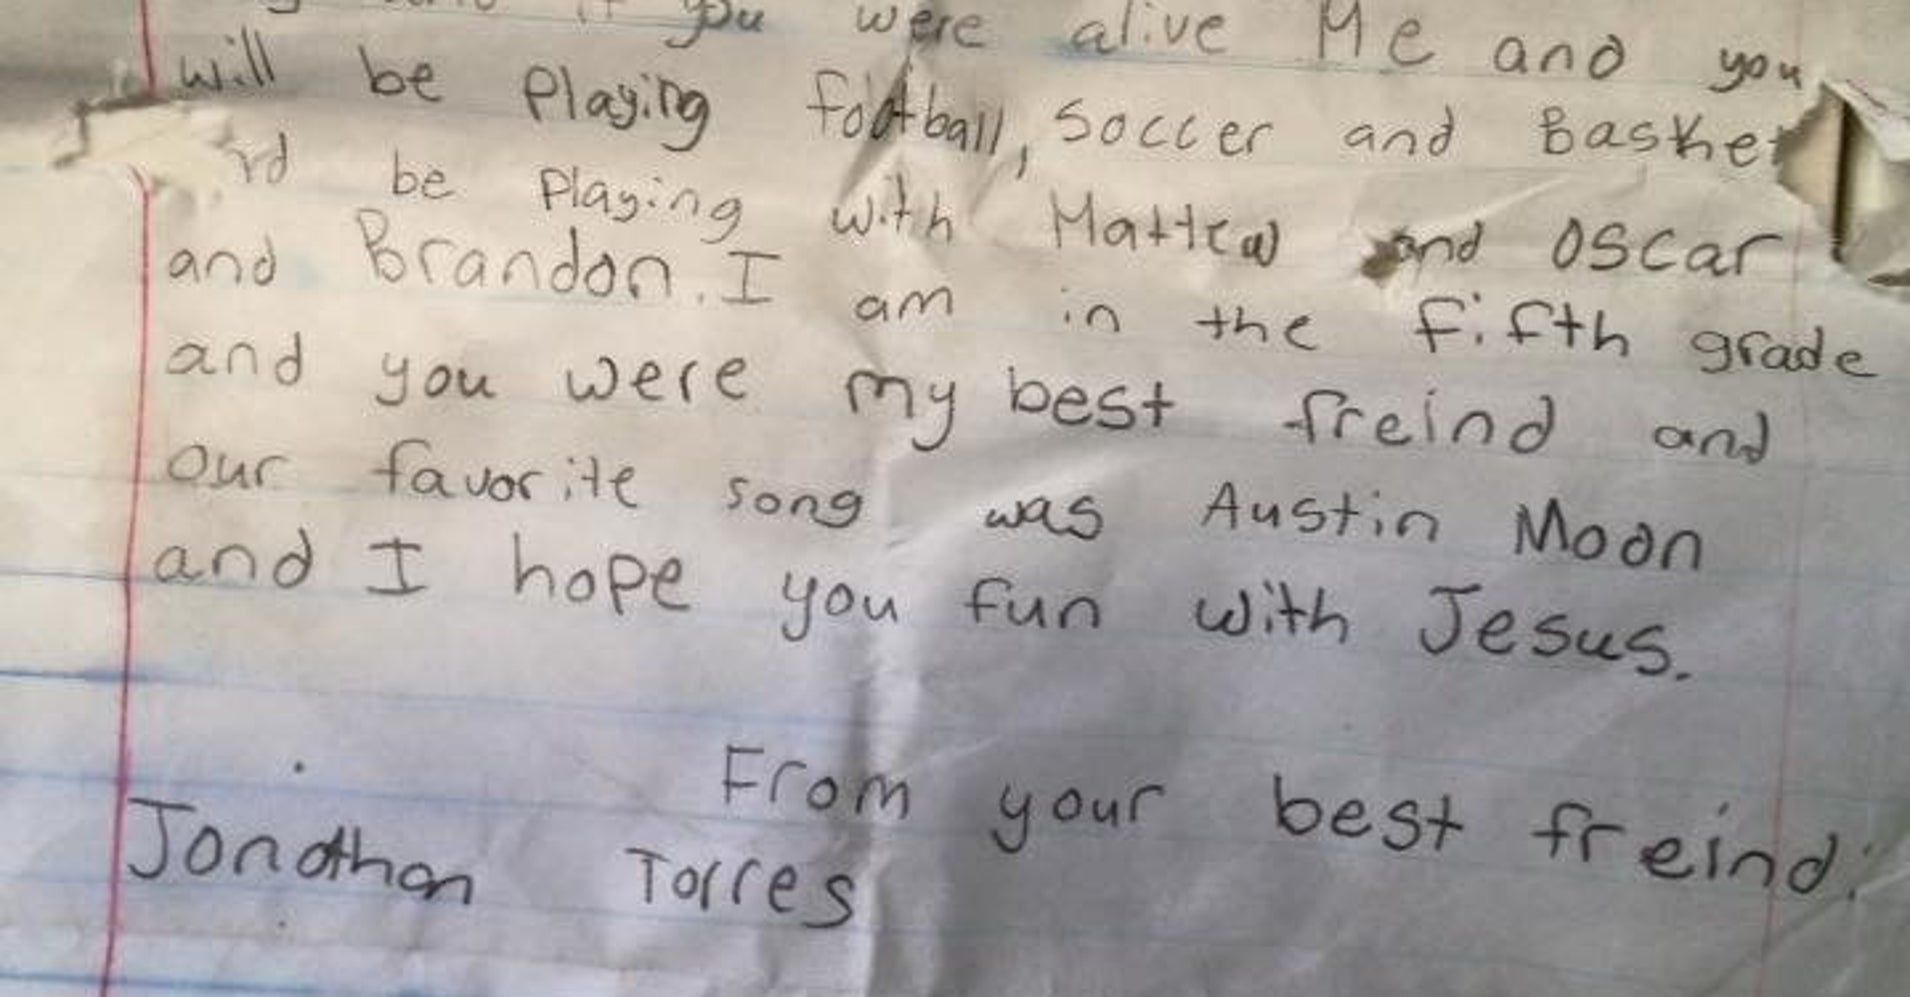 if you were alive Me and you
will be Playing football, soccer and Basket
be Playing with Mattew and Oscar
and Brandon. I am in the fifth grade
and you were my best freind and
our favorite song was Austin Moon
and I hope you fun with Jesus.
From your best freind:
Jonathan Torres